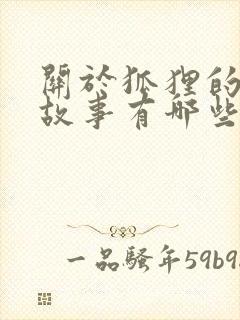 關於狐狸的
故事有哪些
一品騷年59b95